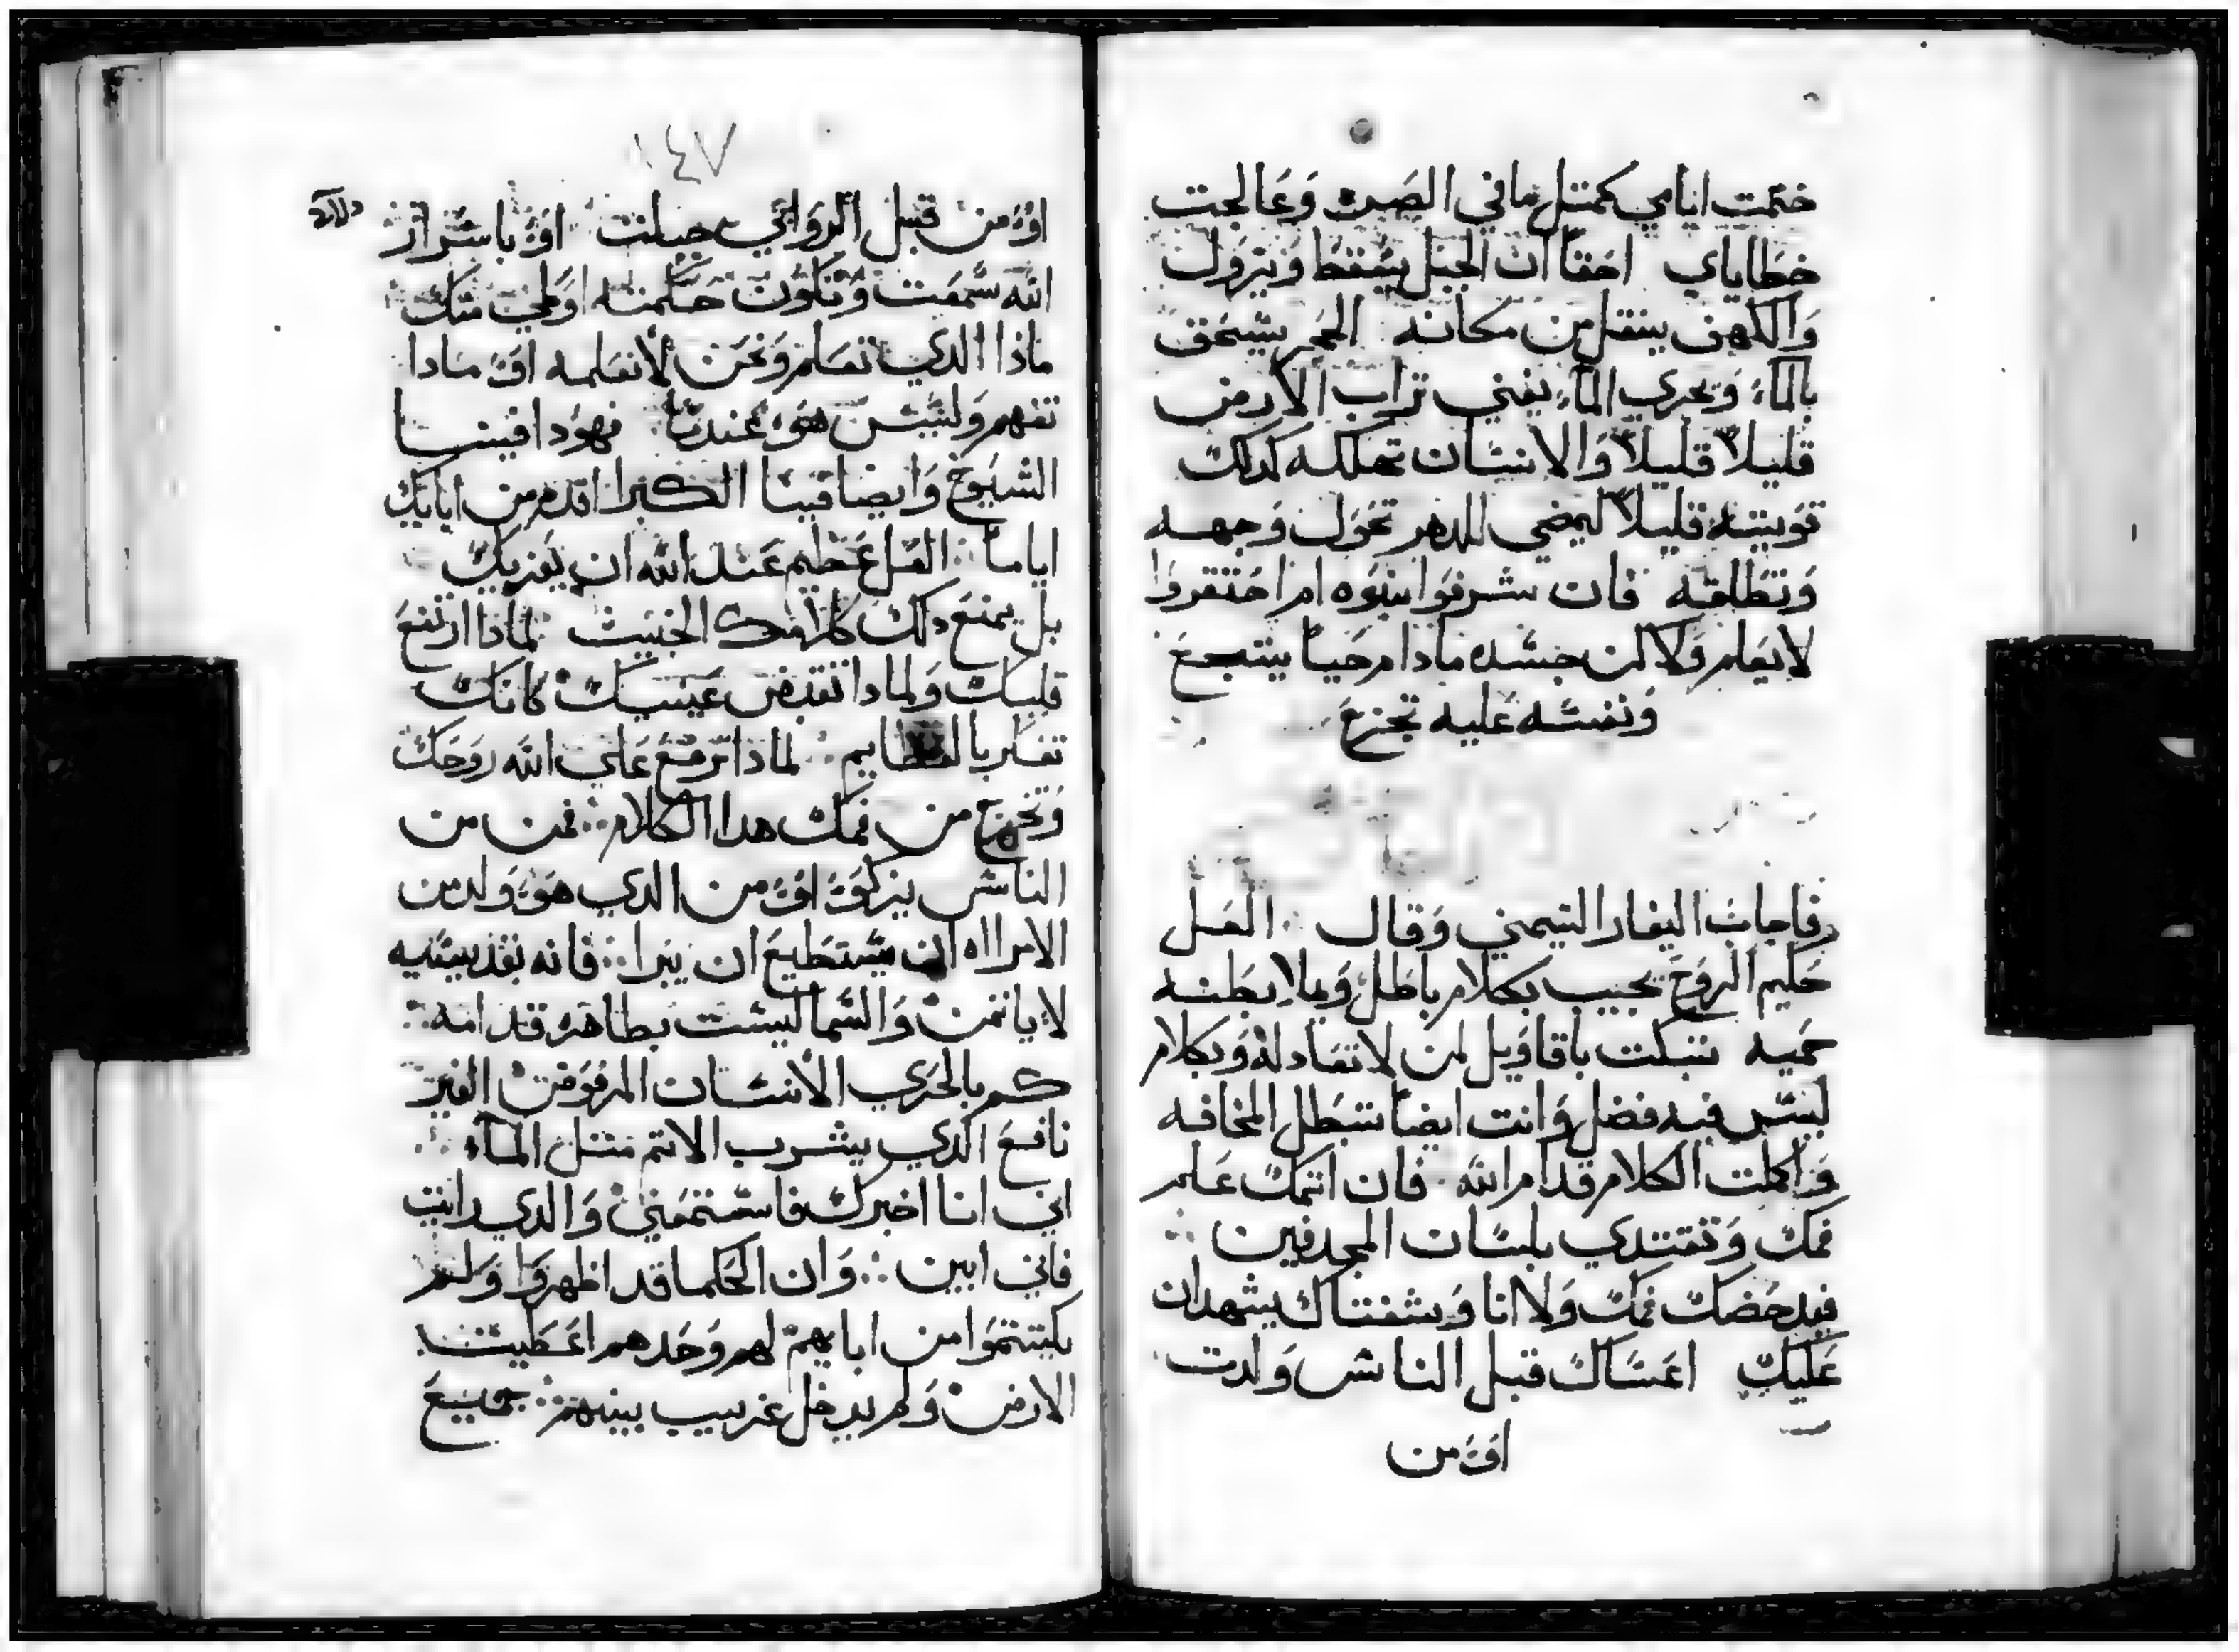 ختمت ايامي كمتل ماني الصره وعالجت
خطاياي احقا ان الجبل يسقط ويزول
والكهف ينتقل من مكانه الحجر يسحق
بالماء وبجري الماء يفني تراب الارض
قليلا قليلا والانسان تهلكه كدلك
تويسه قليلا ليمضي للدهر تحول وجهه
وتطلقه فان شرفوا بنوه ام احتقروا
لا يعلم ولاكن جسده مادام حيا يتجع
ونفسه عليه تجزع
فاجاب اليفاز التيمني وقال العل
حليم الروح يجيب بكلام باطل ويملا بطنه
حميه تبكت باقاويل لمن لا تعادله وبكلام
ليس فيه فضل وانت ايضا تبطل المخافه
واكملت الكلام قدام الله فان اتمك علم
فمك وتقتدي بلسان المجدفين
فيدحضك فمك ولا انا وشفتاك يشهدان
عليك اعساك قبل الناس ولدت
او من
١٤٧
او من قبل الروابي جبلت او باسرار
الله سمعت وتكون حكمته اولي منك
ماذا الدي تعلم ونحن لا نعلمه او مادا
تفهم وليس هو عندنا فهودا فينا
الشيوخ وايضا فينا الكبرا اقدم من ابايك
اياما العل عظيم عند الله ان يعزيك
بل يمنع دلك كلامك الخبيث لماذا ارتفع
قلبك ولمادا تغمض عينيك كانك
تفكر بالعظايم لماذا ترفع علي الله روحك
وتخرج من فمك هدا الكلام فمن من
الناس يزكو او من الدي هو ولد من
الامراه ان يستطيع ان يبرا فانه بقديسيه
لا يانمن والسما ليست بطاهره قدامه
كم بالحري الانسان المرفوض الغير
نافع الدي يشرب الاتم متل الماء
اني انا اخبرك فاستمعني والدي رايت
فاني ابين وان الحكما قد اظهروا ولم
يكتتموا من ابايهم لهم وحدهم اعطيت
الارض ولم يدخل غريب بينهم جميع